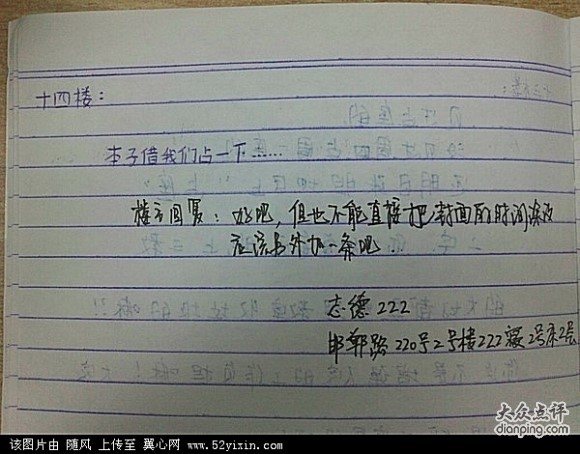 十四楼：
本子借我们占一下……
楼主回复：好吧，但也不能直接把封面的时间涂改
应该另外加一条吧
志德222
邯郸路220号2号楼222寝2号床2层
大众点评
dianping.com
该图片由 随风 上传至 翼心网 www.52yixin.com